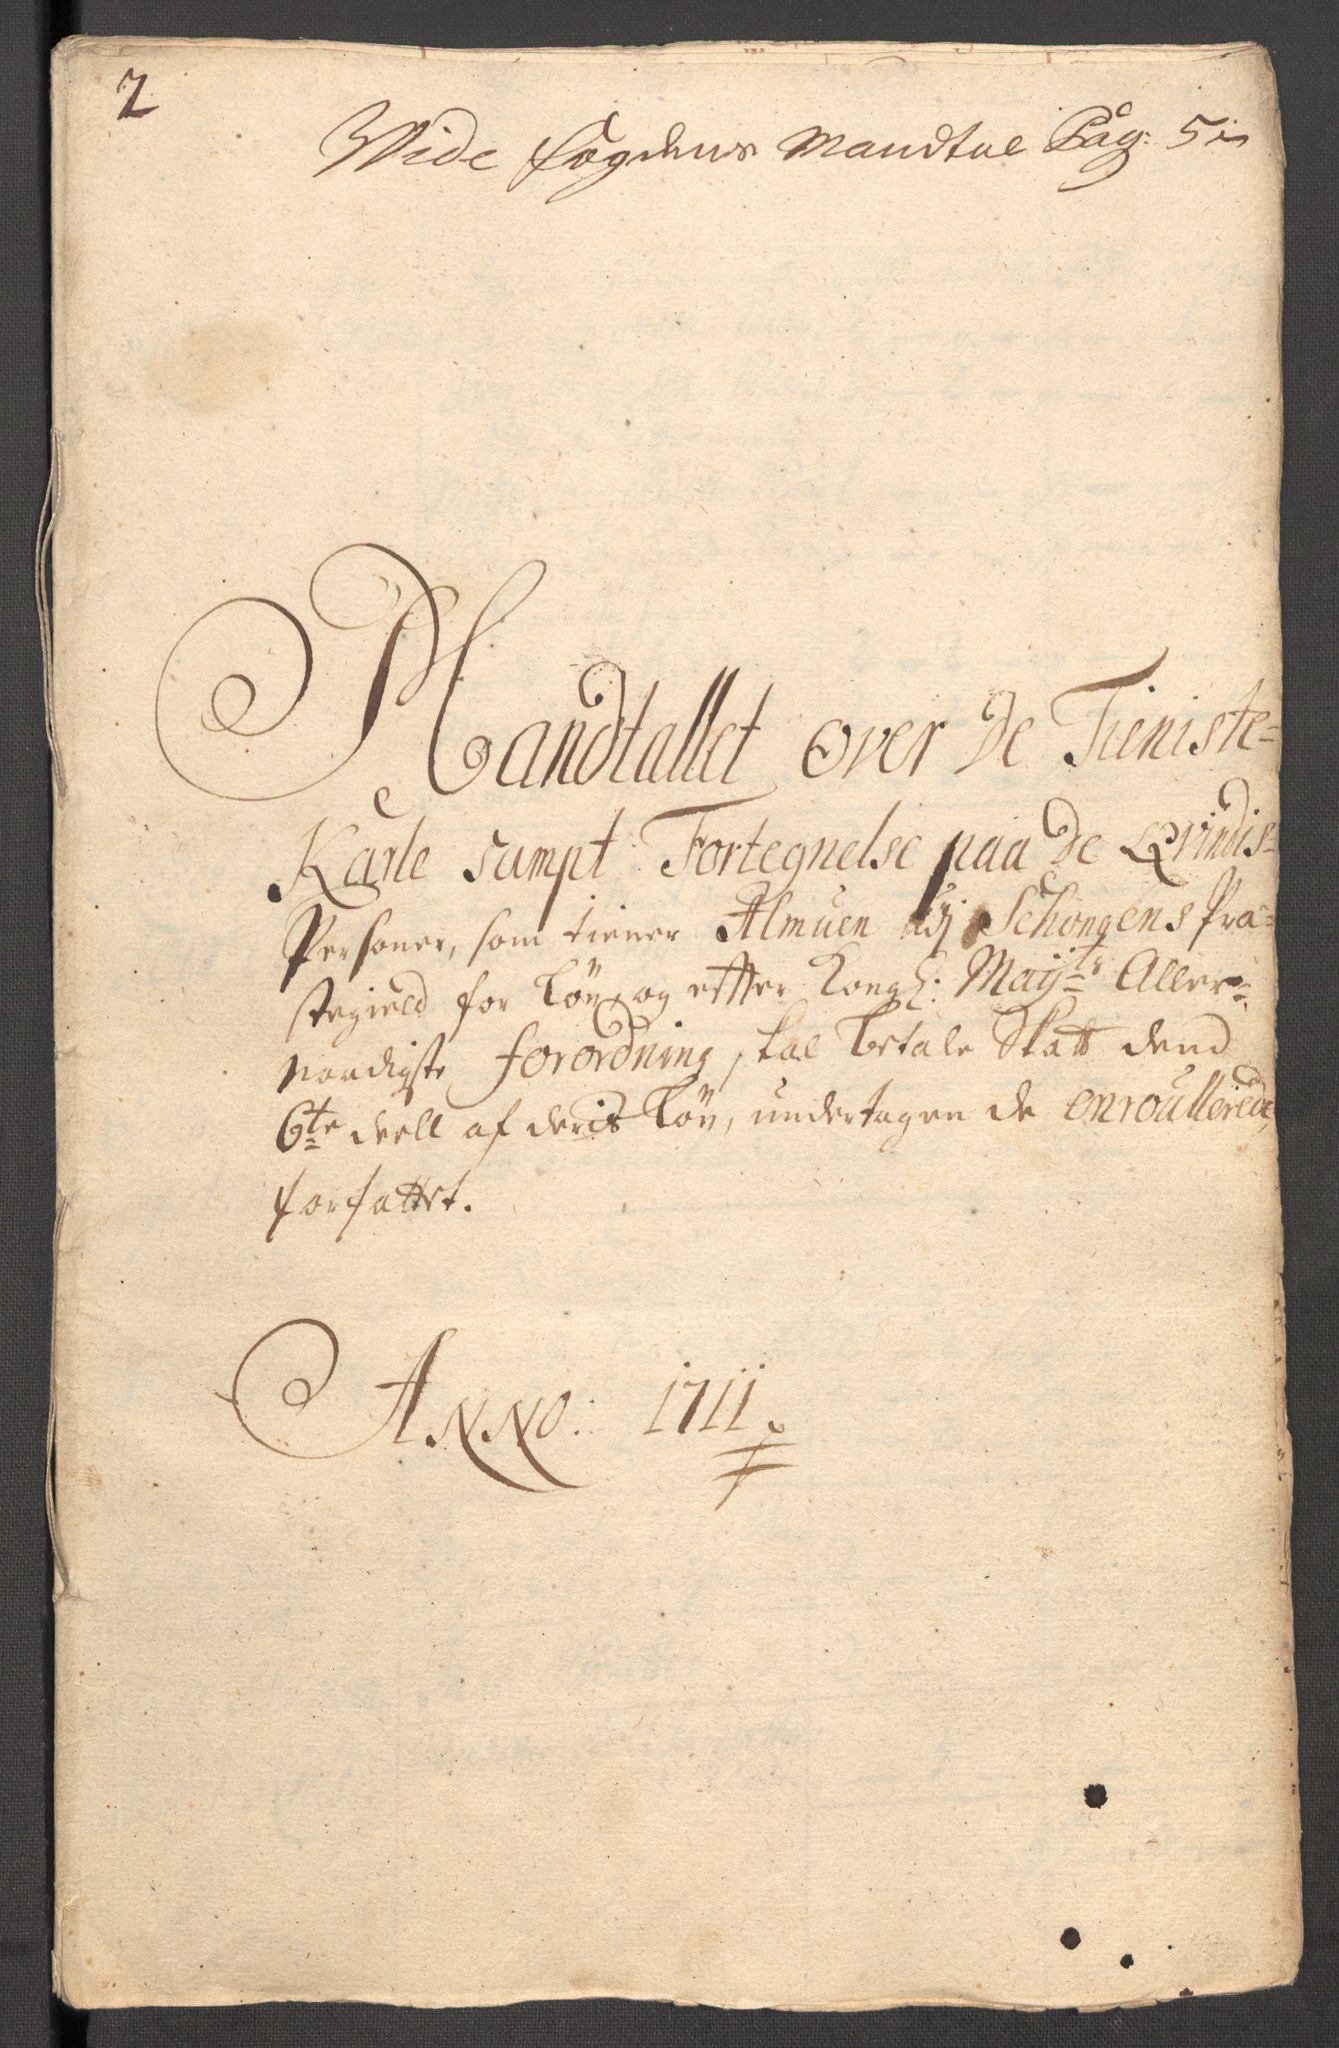 2
Vide fogdens Mandtal Pag: 5
Mandtallet over de Tieniste-
Karle sampt Fortegnelse paa de Qvindis-
Personer, som tiener Almuen udj Schongens Præ-
stegield for Løn, og effter Kongl: Mayts Aller-
naadigste forordning skal betale Skatt dend
6te deell af deris Løn, undertagen de enroullerede,
forfattet.
Anno: 1711